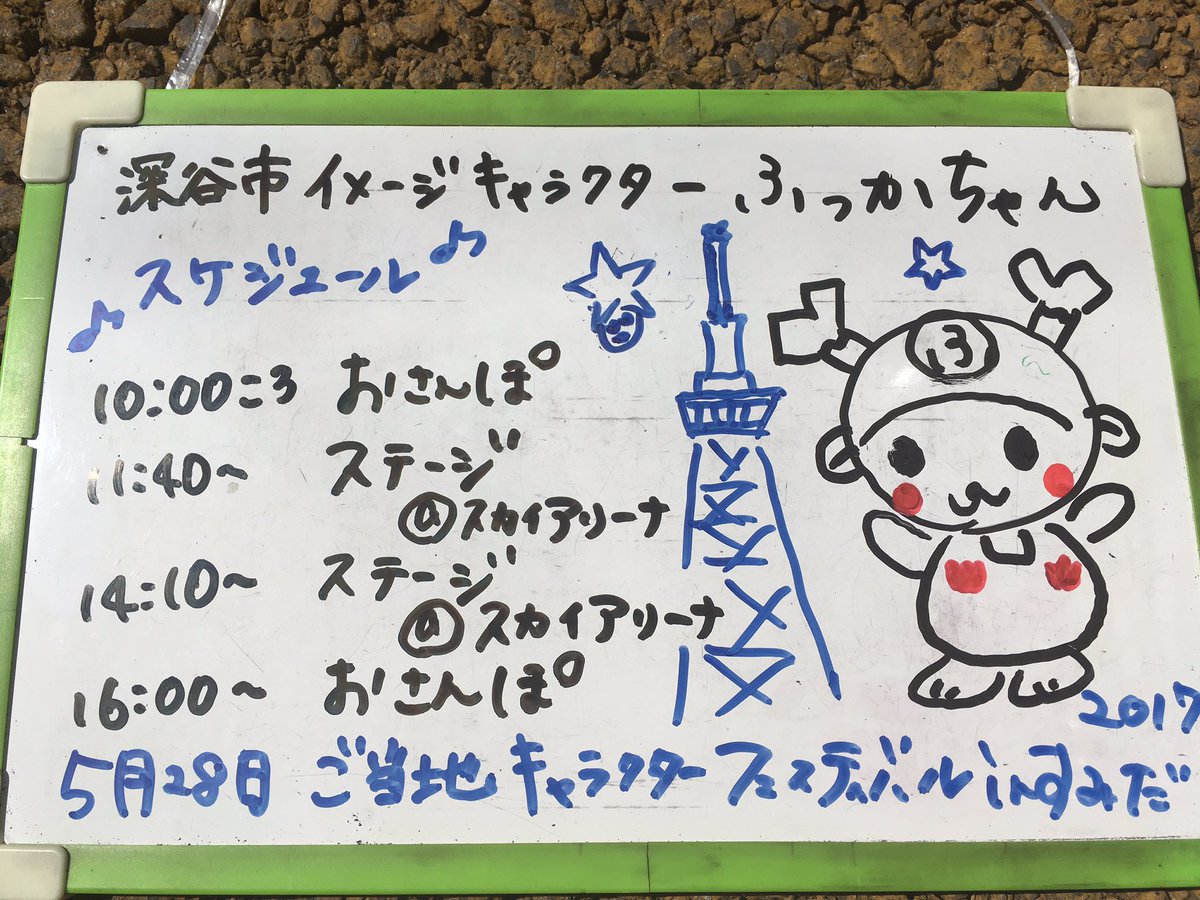 深谷市イメージキャラクターふっかちゃん
♪スケジュール♪
10:00ころ おさんぽ
11:40~ ステージ
@スカイアリーナ
14:10~ ステージ
@スカイアリーナ
16:00~ おさんぽ
ふ
2017
5月28日 ご当地キャラクターフェスティバルinすみだ